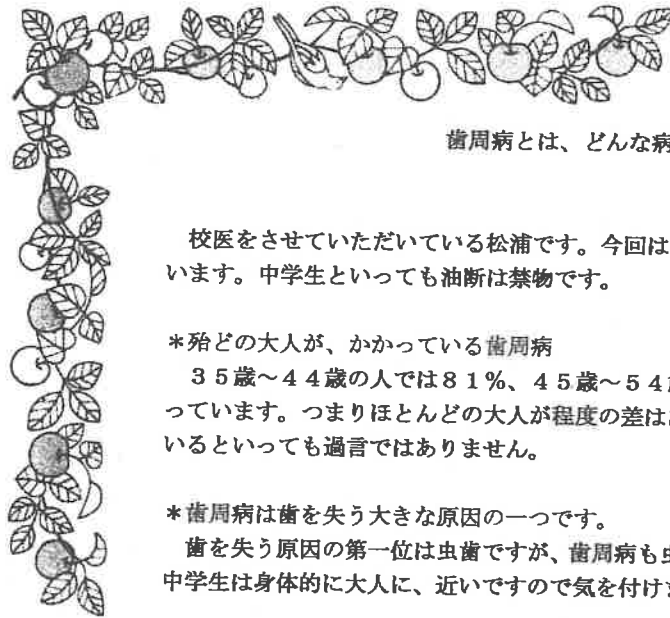 歯周病とは、どんな病
校医をさせていただいている松浦です。今回は
います。中学生といっても油断は禁物です。
*殆どの大人が、かかっている歯周病
35歳~44歳の人では81%、45歳~54
っています。つまりほとんどの大人が程度の差は
いるといっても過言ではありません。
*歯周病は歯を失う大きな原因の一つです。
歯を失う原因の第一位は虫歯ですが、歯周病も
中学生は身体的に大人に、近いですので気を付け